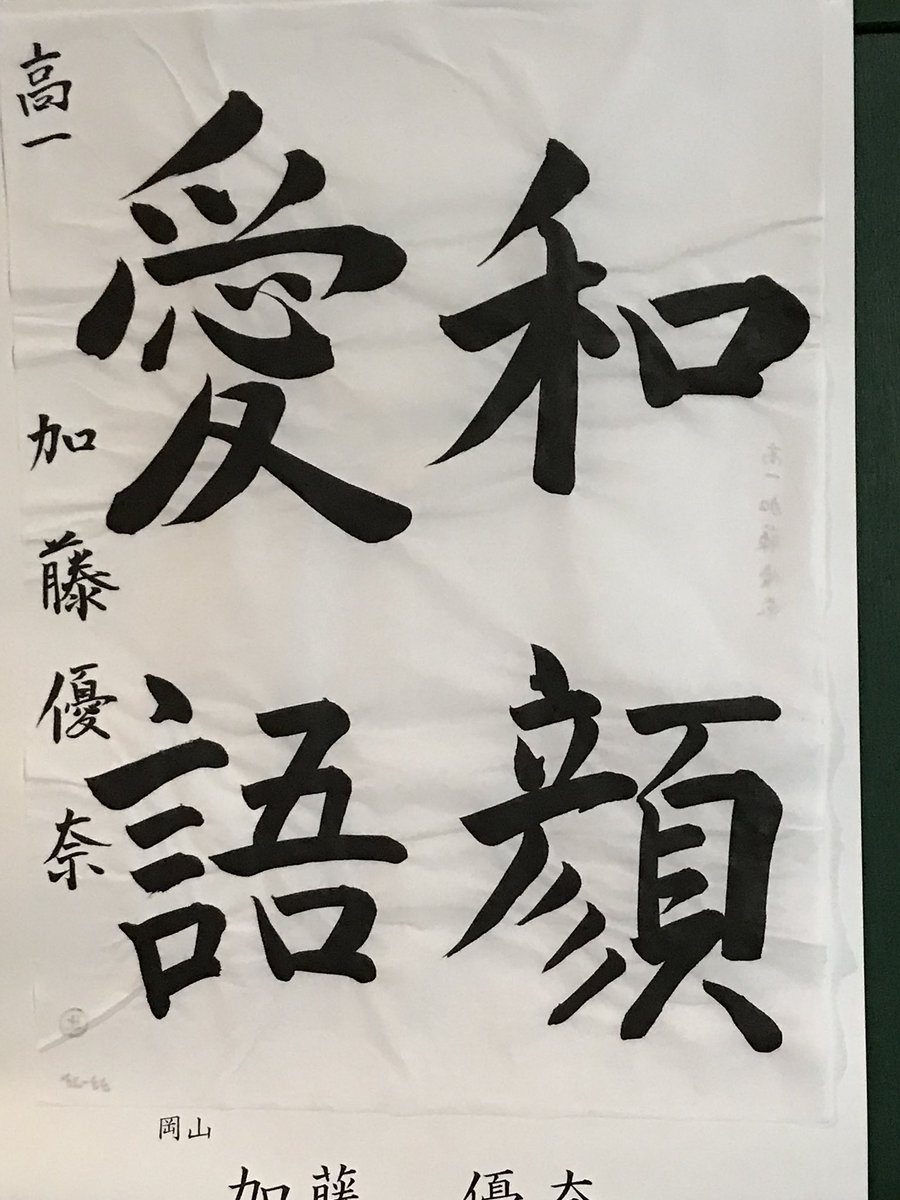 和顔
愛語
高一 加藤優奈
岡山
加藤 優奈